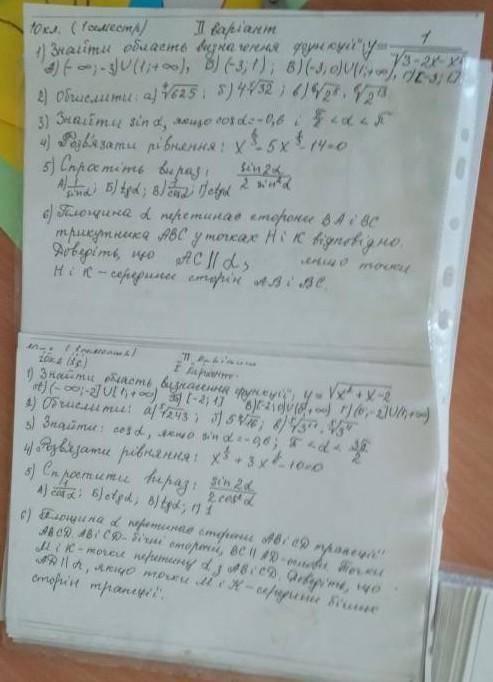 10кл. (1 семестр) II варіант
1) Знайти область визначення функції: y = 1/√(3-2x-x²)
А) (-∞;-3)∪(1;+∞), Б) (-3;1); В) (-3;0)∪(1;+∞),
2) Обчислити: а) ⁴√625; б) 4 ⁵√32; в)
3) Знайти sin α, якщо cos α = -0,6 і π/2 < α < π
4) Розв'язати рівняння: - 5x - 14 = 0
5) Спростіть вираз: sin2α / 2 sin²α
А) 1/sinα; Б) tgα; В) 1/cosα; Г) ctgα
6) Площина α перетинає сторони BA і BC
трикутника ABC у точках H і K відповідно.
Доведіть, що AC || α, якщо точки
H і K - середини сторін AB і BC.
I варіант
1) Знайти область визначення функції; y = √(x² + x - 2)
А) (-∞;-2]∪[1;+∞) Б) [-2;1]
2) Обчислити: а) ⁵√243; б) 5 ⁴√16; в)
3) Знайти: cos α, якщо sin α = -0,6; π < α < 3π/2
4) Розв'язати рівняння: + 3x - 10 = 0
5) Спростити вираз: sin2α / 2cos²α
А) 1/cosα; Б) ctgα; В) tgα; Г) 1
6) Площина α перетинає сторони AB і CD трапеції
ABCD. AB і CD - бічні сторони, BC || AD - Точки
M і K - точки перетину α з AB і CD. Доведіть, що
AD || α, якщо точки M і K - середини бічних
сторін трапеції.